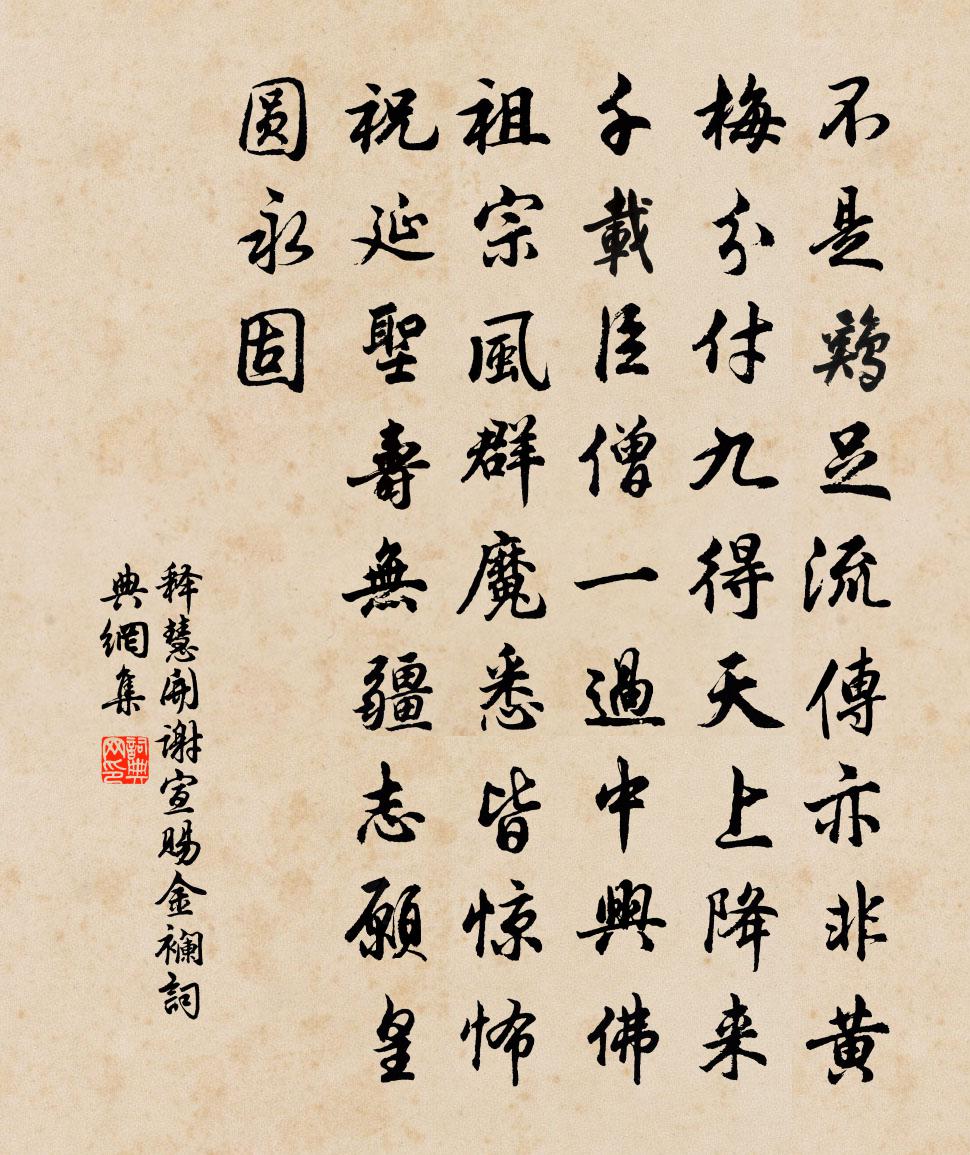 不是鷄足流傳亦非黄
梅分付九得天上降来
千載臣僧一過中興佛
祖宗風群魔悉皆惊怖
祝延聖壽無疆志願皇
圓永固
释慧開謝宣賜金襴詞
典網集
詞典网印